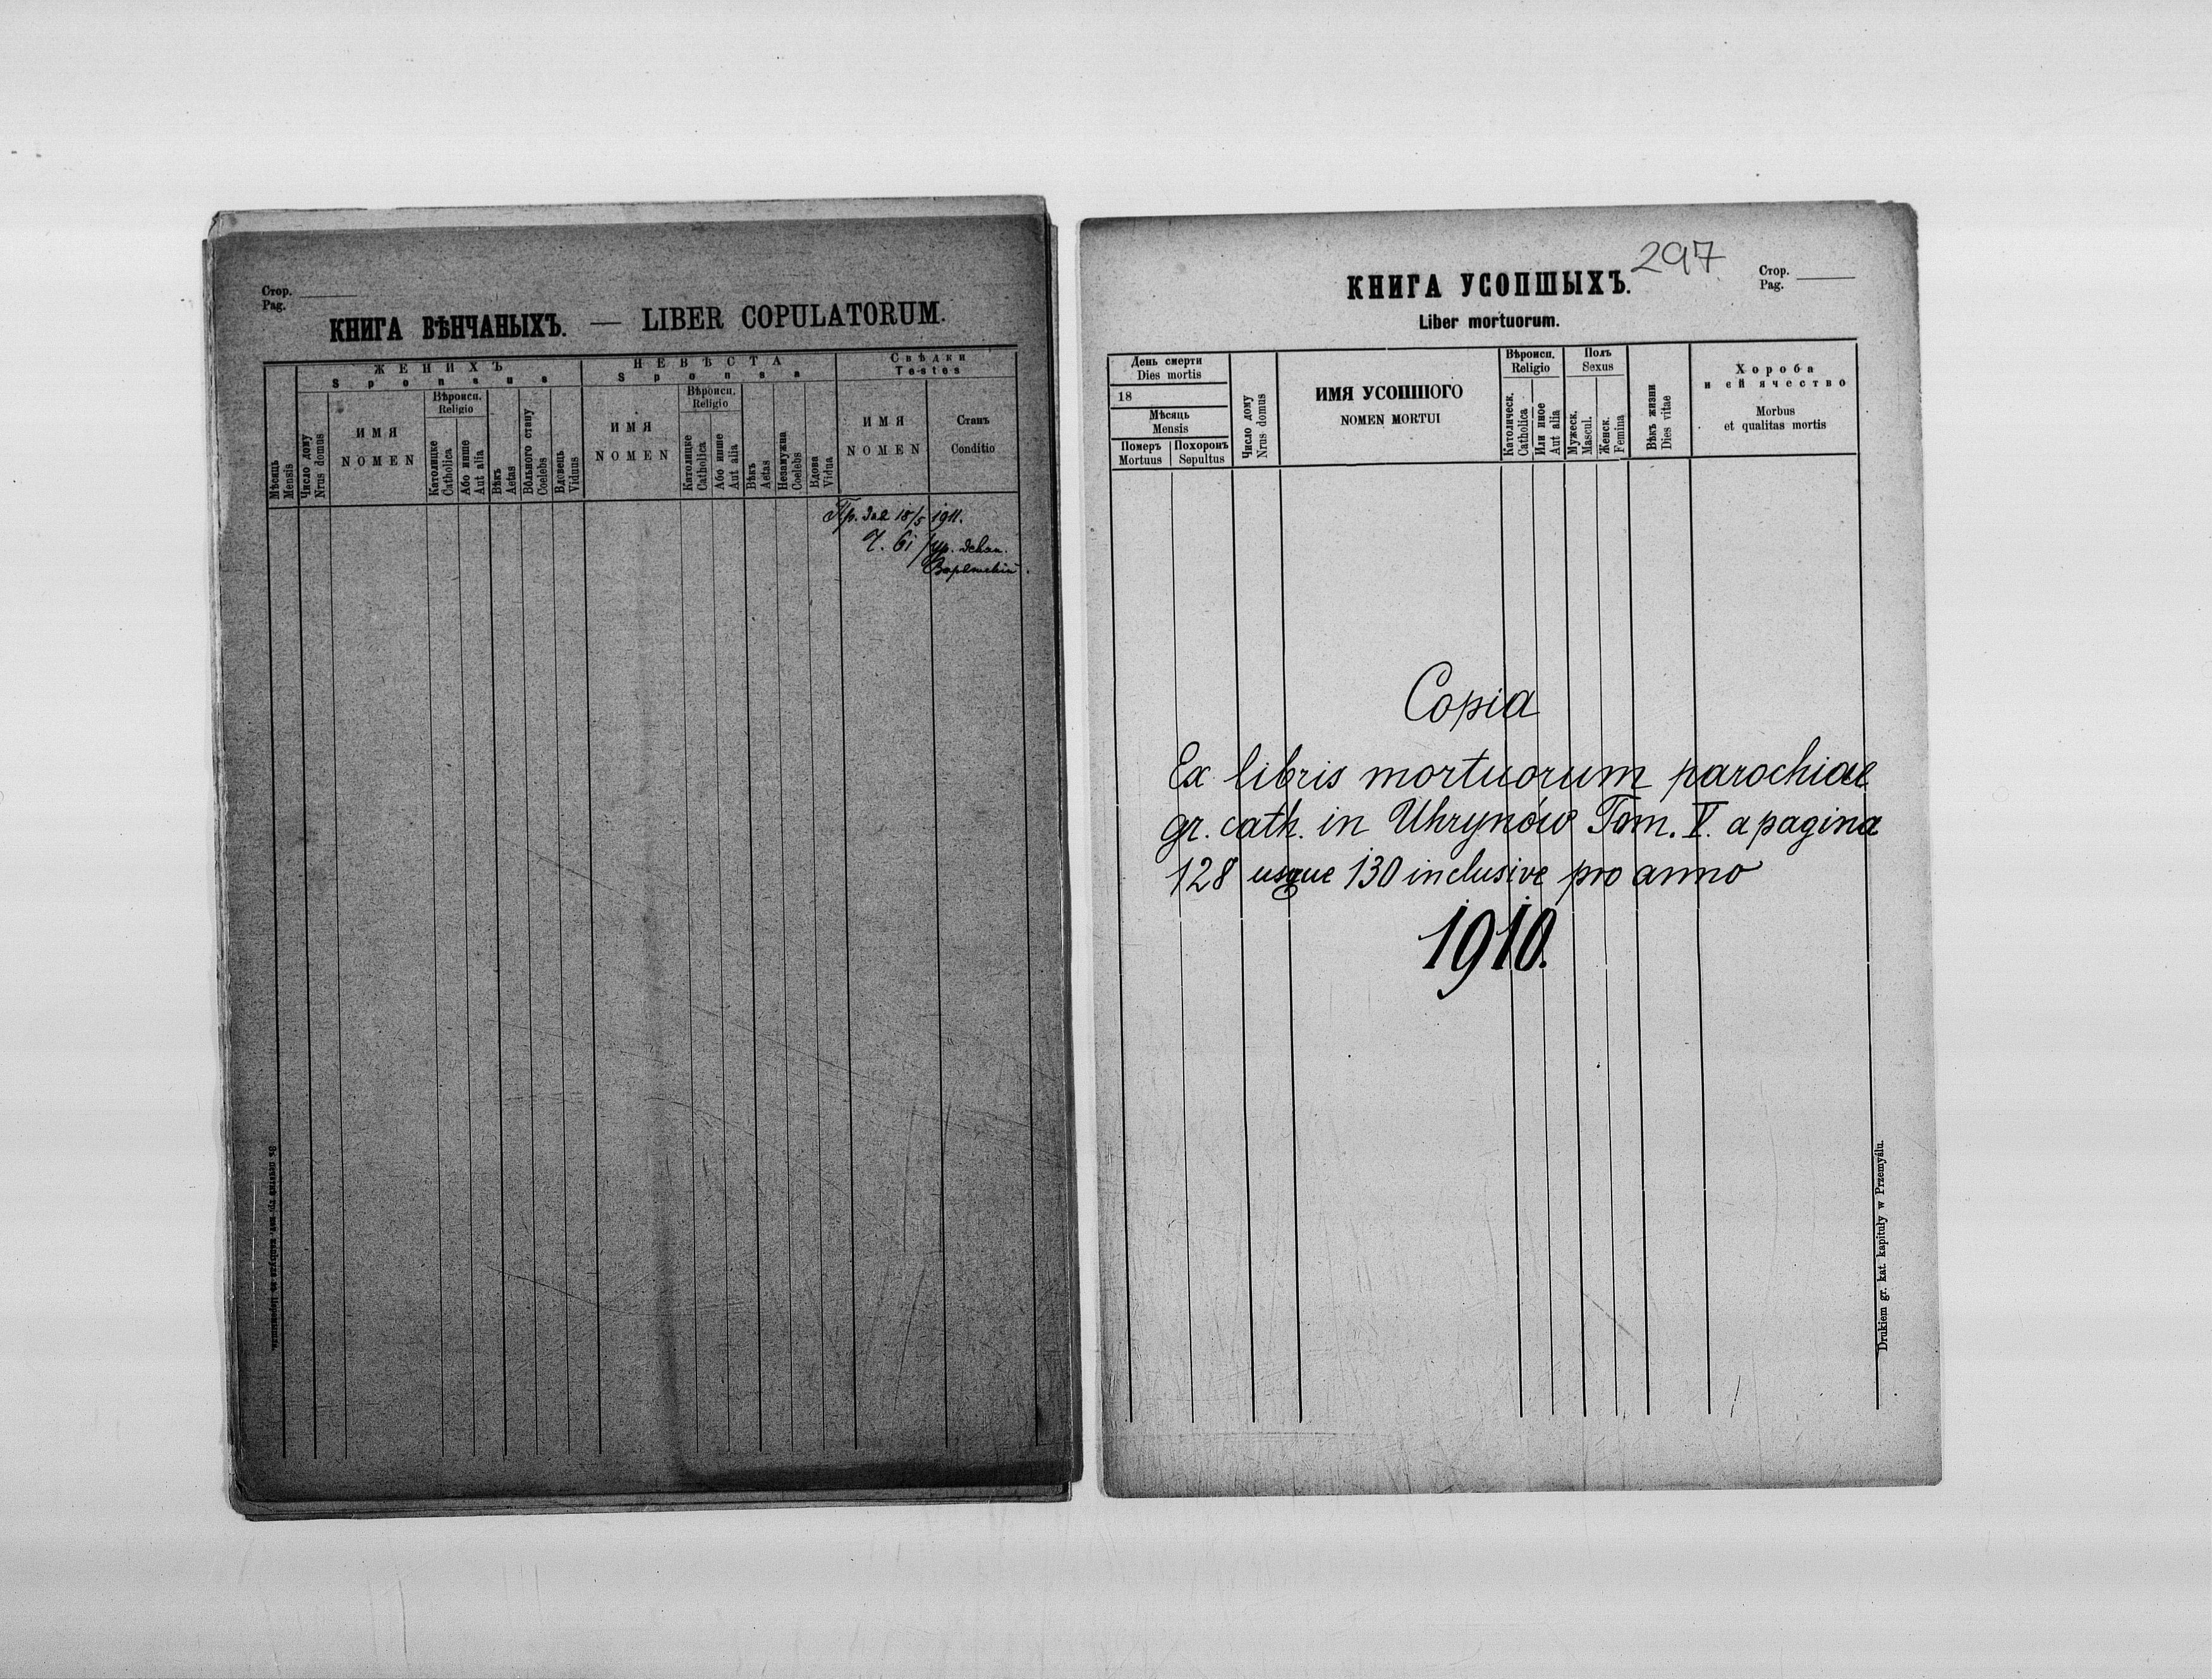 Стор.
Pag.
КНИГА ВѢНЧАНЫХЪ. — LIBER COPULATORUM.
Мѣсяць
Mensis
ЖЕНИХЪ
Sponsus
Число дому
Nrus domus
ИМЯ
NOMEN
Вѣроисп.
Religio
Католицке
Catholica
Або инше
Aut alia
Вѣкъ
Aetas
Во́льного стану
Coelebs
Вдовець
Viduus
НЕВѢСТА
Sponsa
ИМЯ
NOMEN
Вѣроисп.
Religio
Католицке
Catholica
Або инше
Aut alia
Вѣкъ
Aetas
Незамужна
Coelebs
Вдова
Vidua
Свѣдки
Testes
ИМЯ
NOMEN
Станъ
Conditio
18/5 1911.
Ч. 61
297
КНИГА УСОПШЫХЪ.
Liber mortuorum.
Стор.
Pag.
День смерти
Dies mortis
18
Мѣсяць
Mensis
Померъ
Mortuus
Похоронъ
Sepultus
Число дому
Nrus domus
ИМЯ УСОПШОГО
NOMEN MORTUI
Вѣроисп.
Religio
Католическ.
Catholica
Или иное
Aut alia
Полъ
Sexus
Мужеск.
Mascul.
Женск.
Femina
Вѣкъ жизни
Dies vitae
Хороба
и ей ячество
Morbus
et qualitas mortis
Copia
Ex libris mortuorum parochiae
gr. cath. in Uhrynów Tom. V. a pagina
128 usque 130 inclusive pro anno
1910.
Drukiem gr. kat. kapituły w Przemyślu.